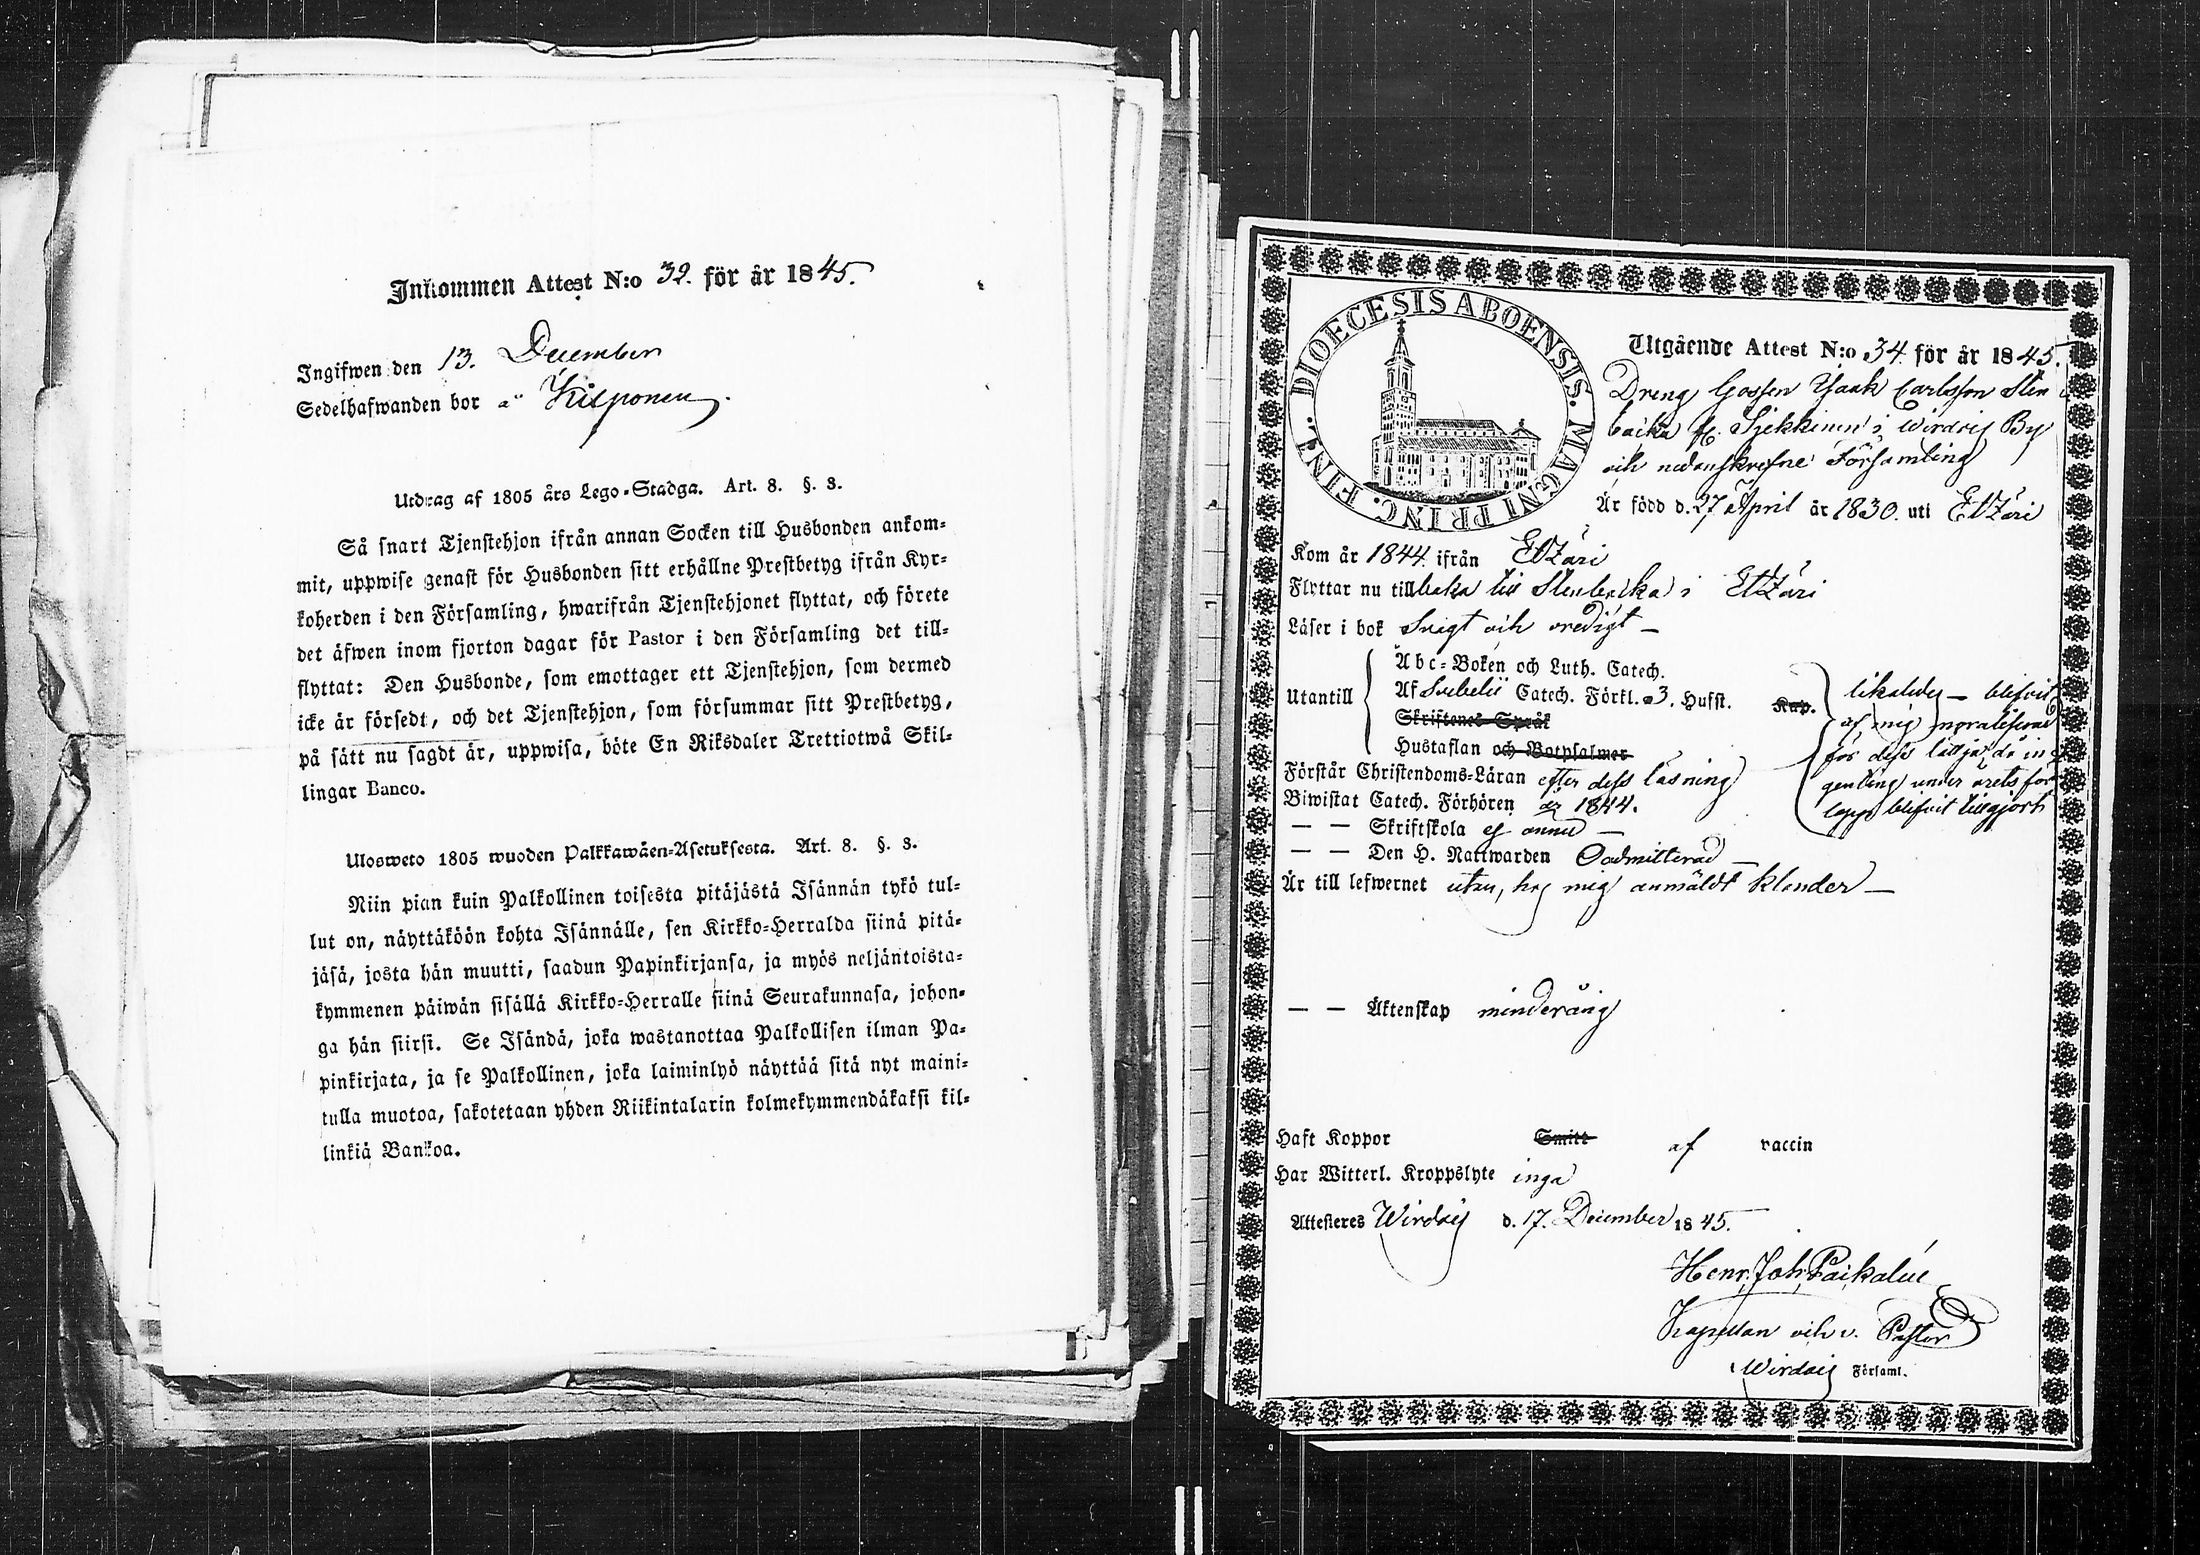 Inkommen Attest N:o 32. för år 1845.
Ingifwen den 13. December
Sedelhafwanden bor å Kilponen.
Utdrag af 1805 års Lego-Stadga. Art. 8. §. 3.
Så snart Tjenstehjon ifrån annan Socken till Husbonden ankom-
mit, uppwise genast för Husbonden sitt erhållne Prestbetyg ifrån Kyr-
koherden i den Församling, hwarifrån Tjenstehjonet flyttat, och förete
det äfwen inom fjorton dagar för Pastor i den Församling det till-
flyttat: Den Husbonde, som emottager ett Tjenstehjon, som dermed
icke är försedt, och det Tjenstehjon, som försummar sitt Prestbetyg,
på sätt nu sagdt är, uppwisa, böte En Riksdaler Trettiotwå Skil-
lingar Banco.
Ulosweto 1805 wuoden Palkkawäen-Asetuksesta. Art. 8. §. 3.
Niin pian kuin Palkollinen toisesta pitäjästä Isännän tykö tul-
lut on, näyttäköön kohta Isännälle, sen Kirkko-Herralda siinä pitä-
jäsä, josta hän muutti, saadun Papinkirjansa, ja myös neljäntoista-
kymmenen päiwän sisällä Kirkko-Herralle siinä Seurakunnasa, johon-
ga hän siirsi. Se Isändä, joka wastanottaa Palkollisen ilman Pa-
pinkirjata, ja se Palkollinen, joka laiminlyö näyttää sitä nyt maini-
tulla muotoa, sakotetaan yhden Riikintalarin kolmekymmendäkaksi kil-
linkiä Bankoa.
DIOECESIS ABOENSIS. MAGNI PRINC. FINL.
Utgående Attest N:o 34. för år 1845.
Dreng Gossen Isaak Carlsson Sten
backa fr. Sjekkinen i Wirdois By
och nedanskrefne Församling
Är född d. 27 April år 1830. uti Etzäri
Kom år 1844. ifrån Etzäri
Flyttar nu tillbaka till Stenbacka i Etzäri
Läser i bok svagt och oredigt —
Abc-Boken och Luth. Catech.
Utantill Af Svebelii Catech. Förkl. 3. Hufst. Kap.
Skriftenes Språk
Hustaflan och Botpsalmer
likaledes — blifvit
af mig
för dess
genting under årets för
lopp blifvit tillgjort
Förstår Christendoms-Läran efter dess läsning
Biwistat Catech. Förhören år 1844.
— — Skriftskola ej ännu —
— — Den H. Nattwarden Oadmitterad —
Är till lefwernet utan, hos mig anmäldt klander —
— — Äktenskap minderårig
Haft Koppor Smitt af vaccin
Har Witterl. Kroppslyte inga
Attesteres Wirdois d. 17. December 1845.
Henr. Joh.
Kapellan och v. Pastor
Wirdois Församl.